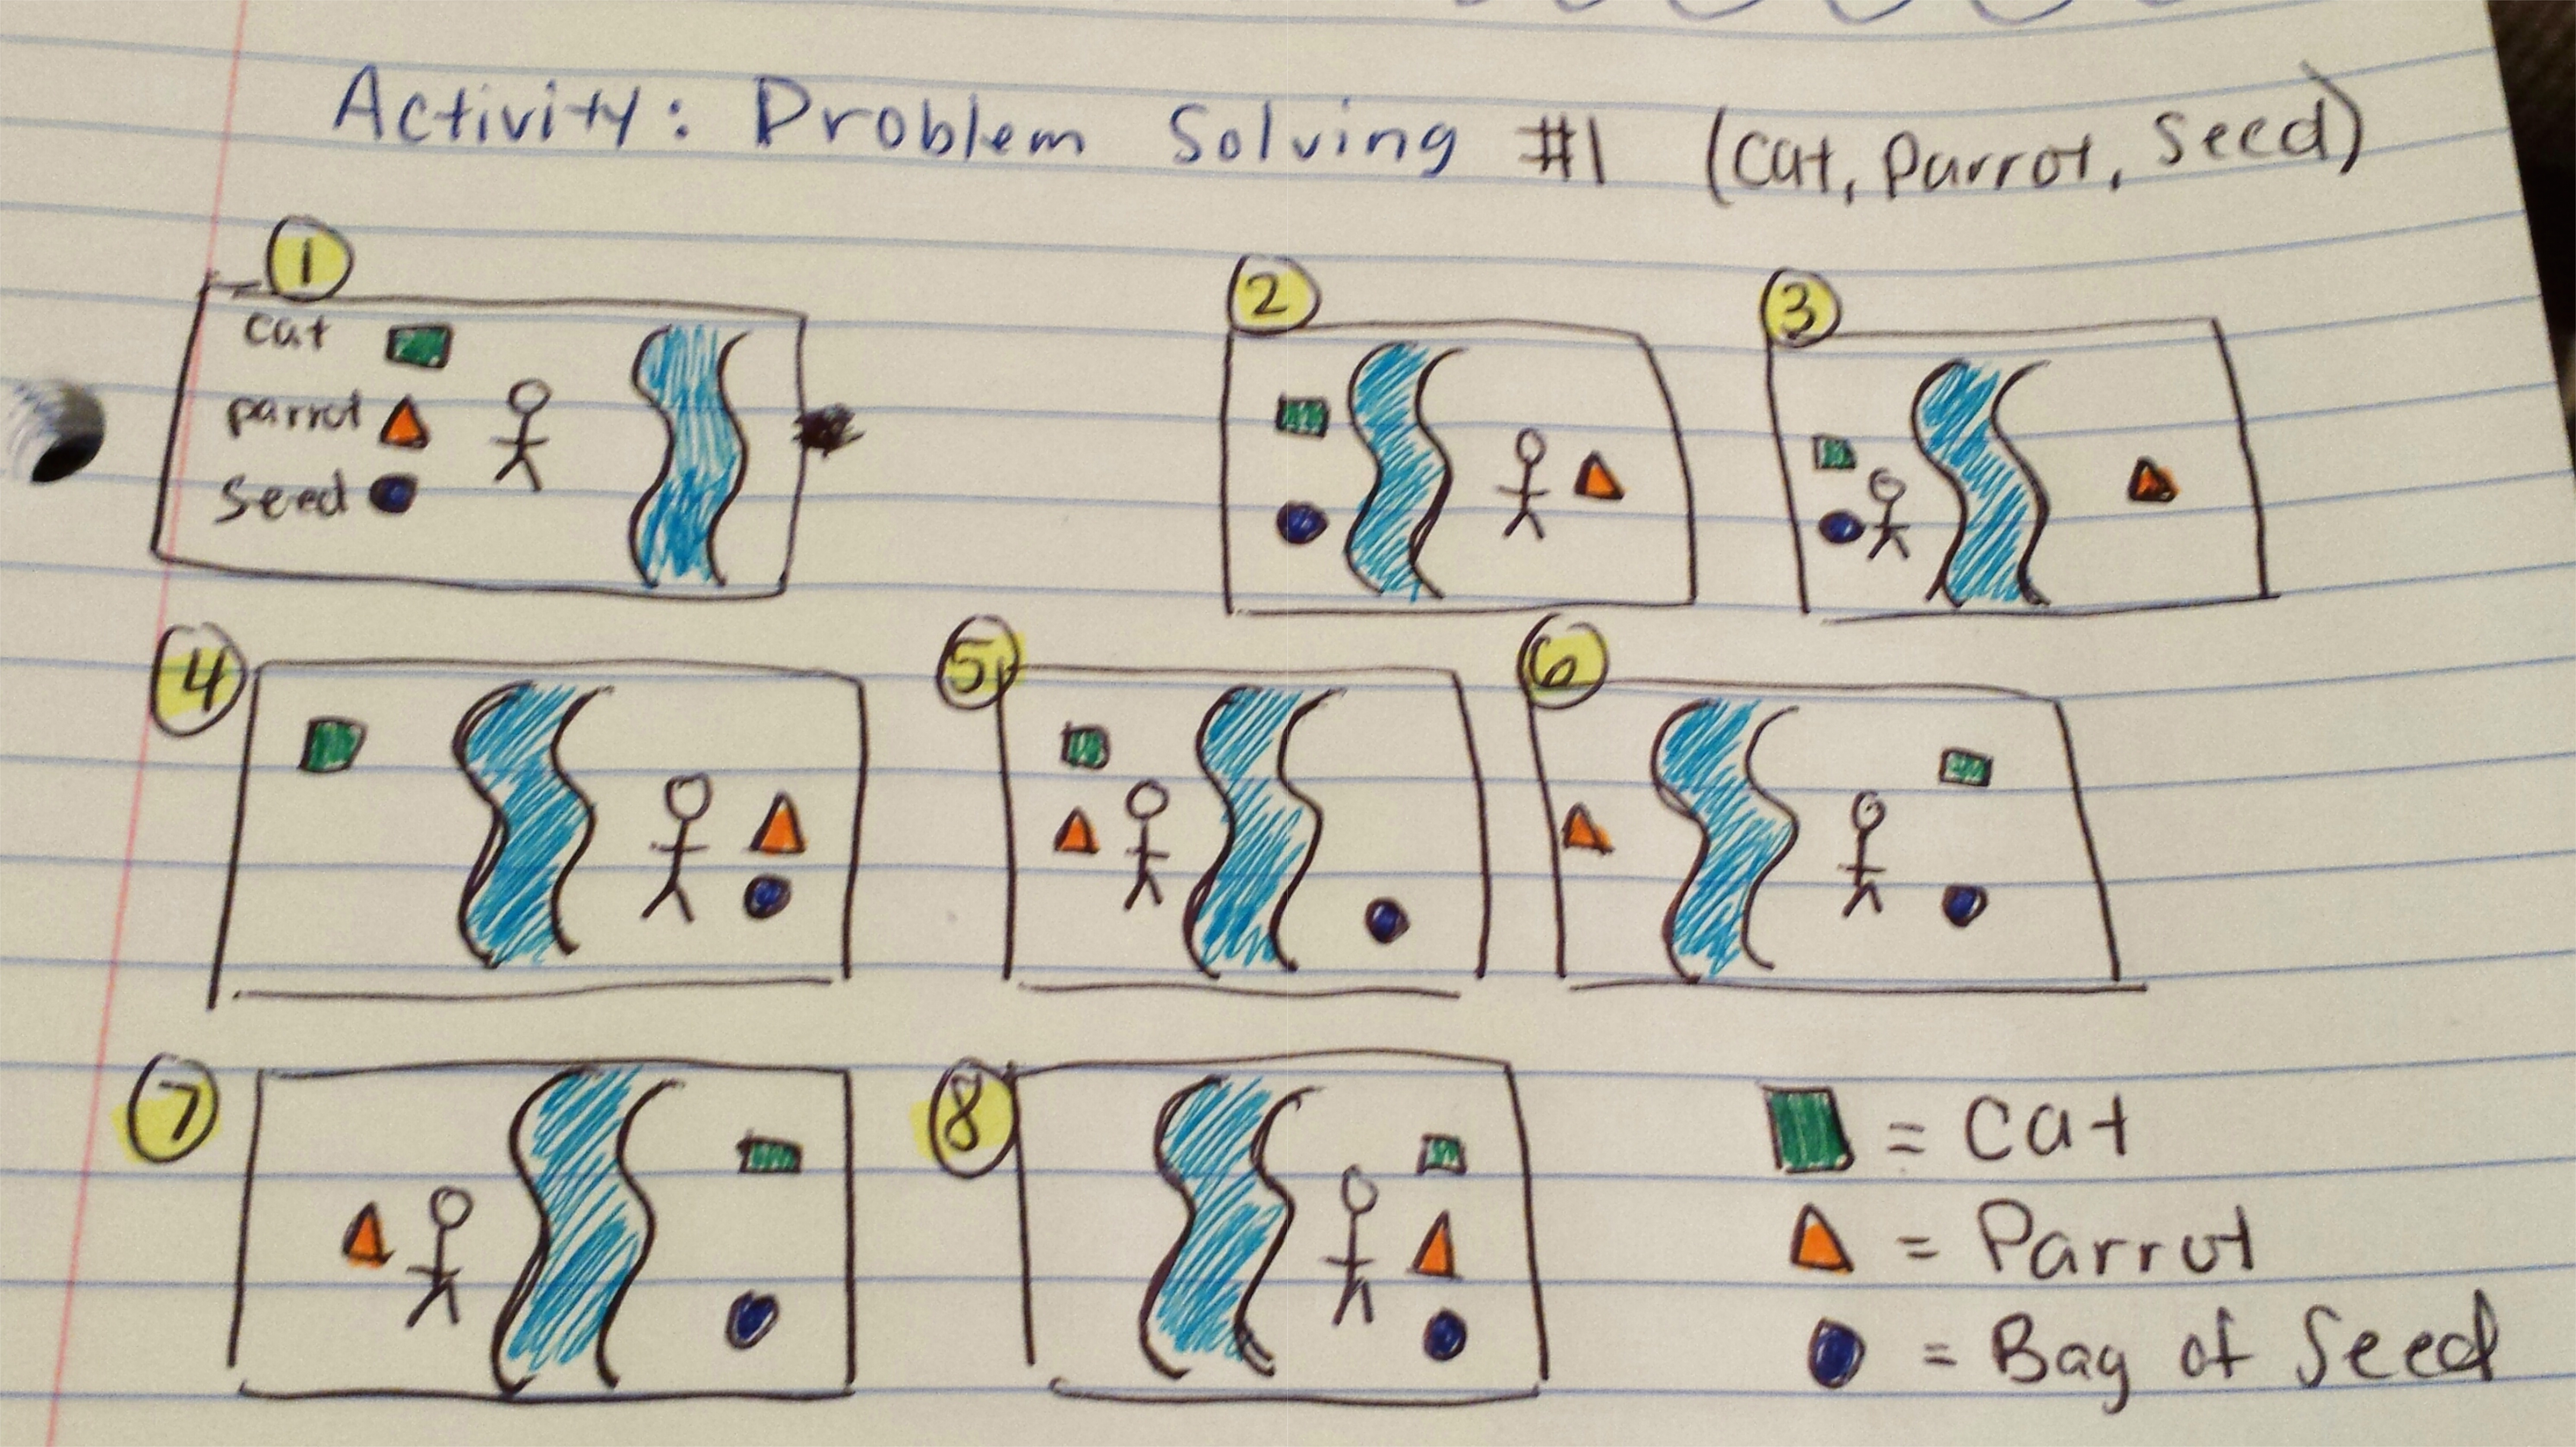 Activity: Problem Solving #1 (Cat, Parrot, Seed)
1
cat
parrot
seed
2
3
4
5
6
7
8
= Cat
= Parrot
= Bag of Seed